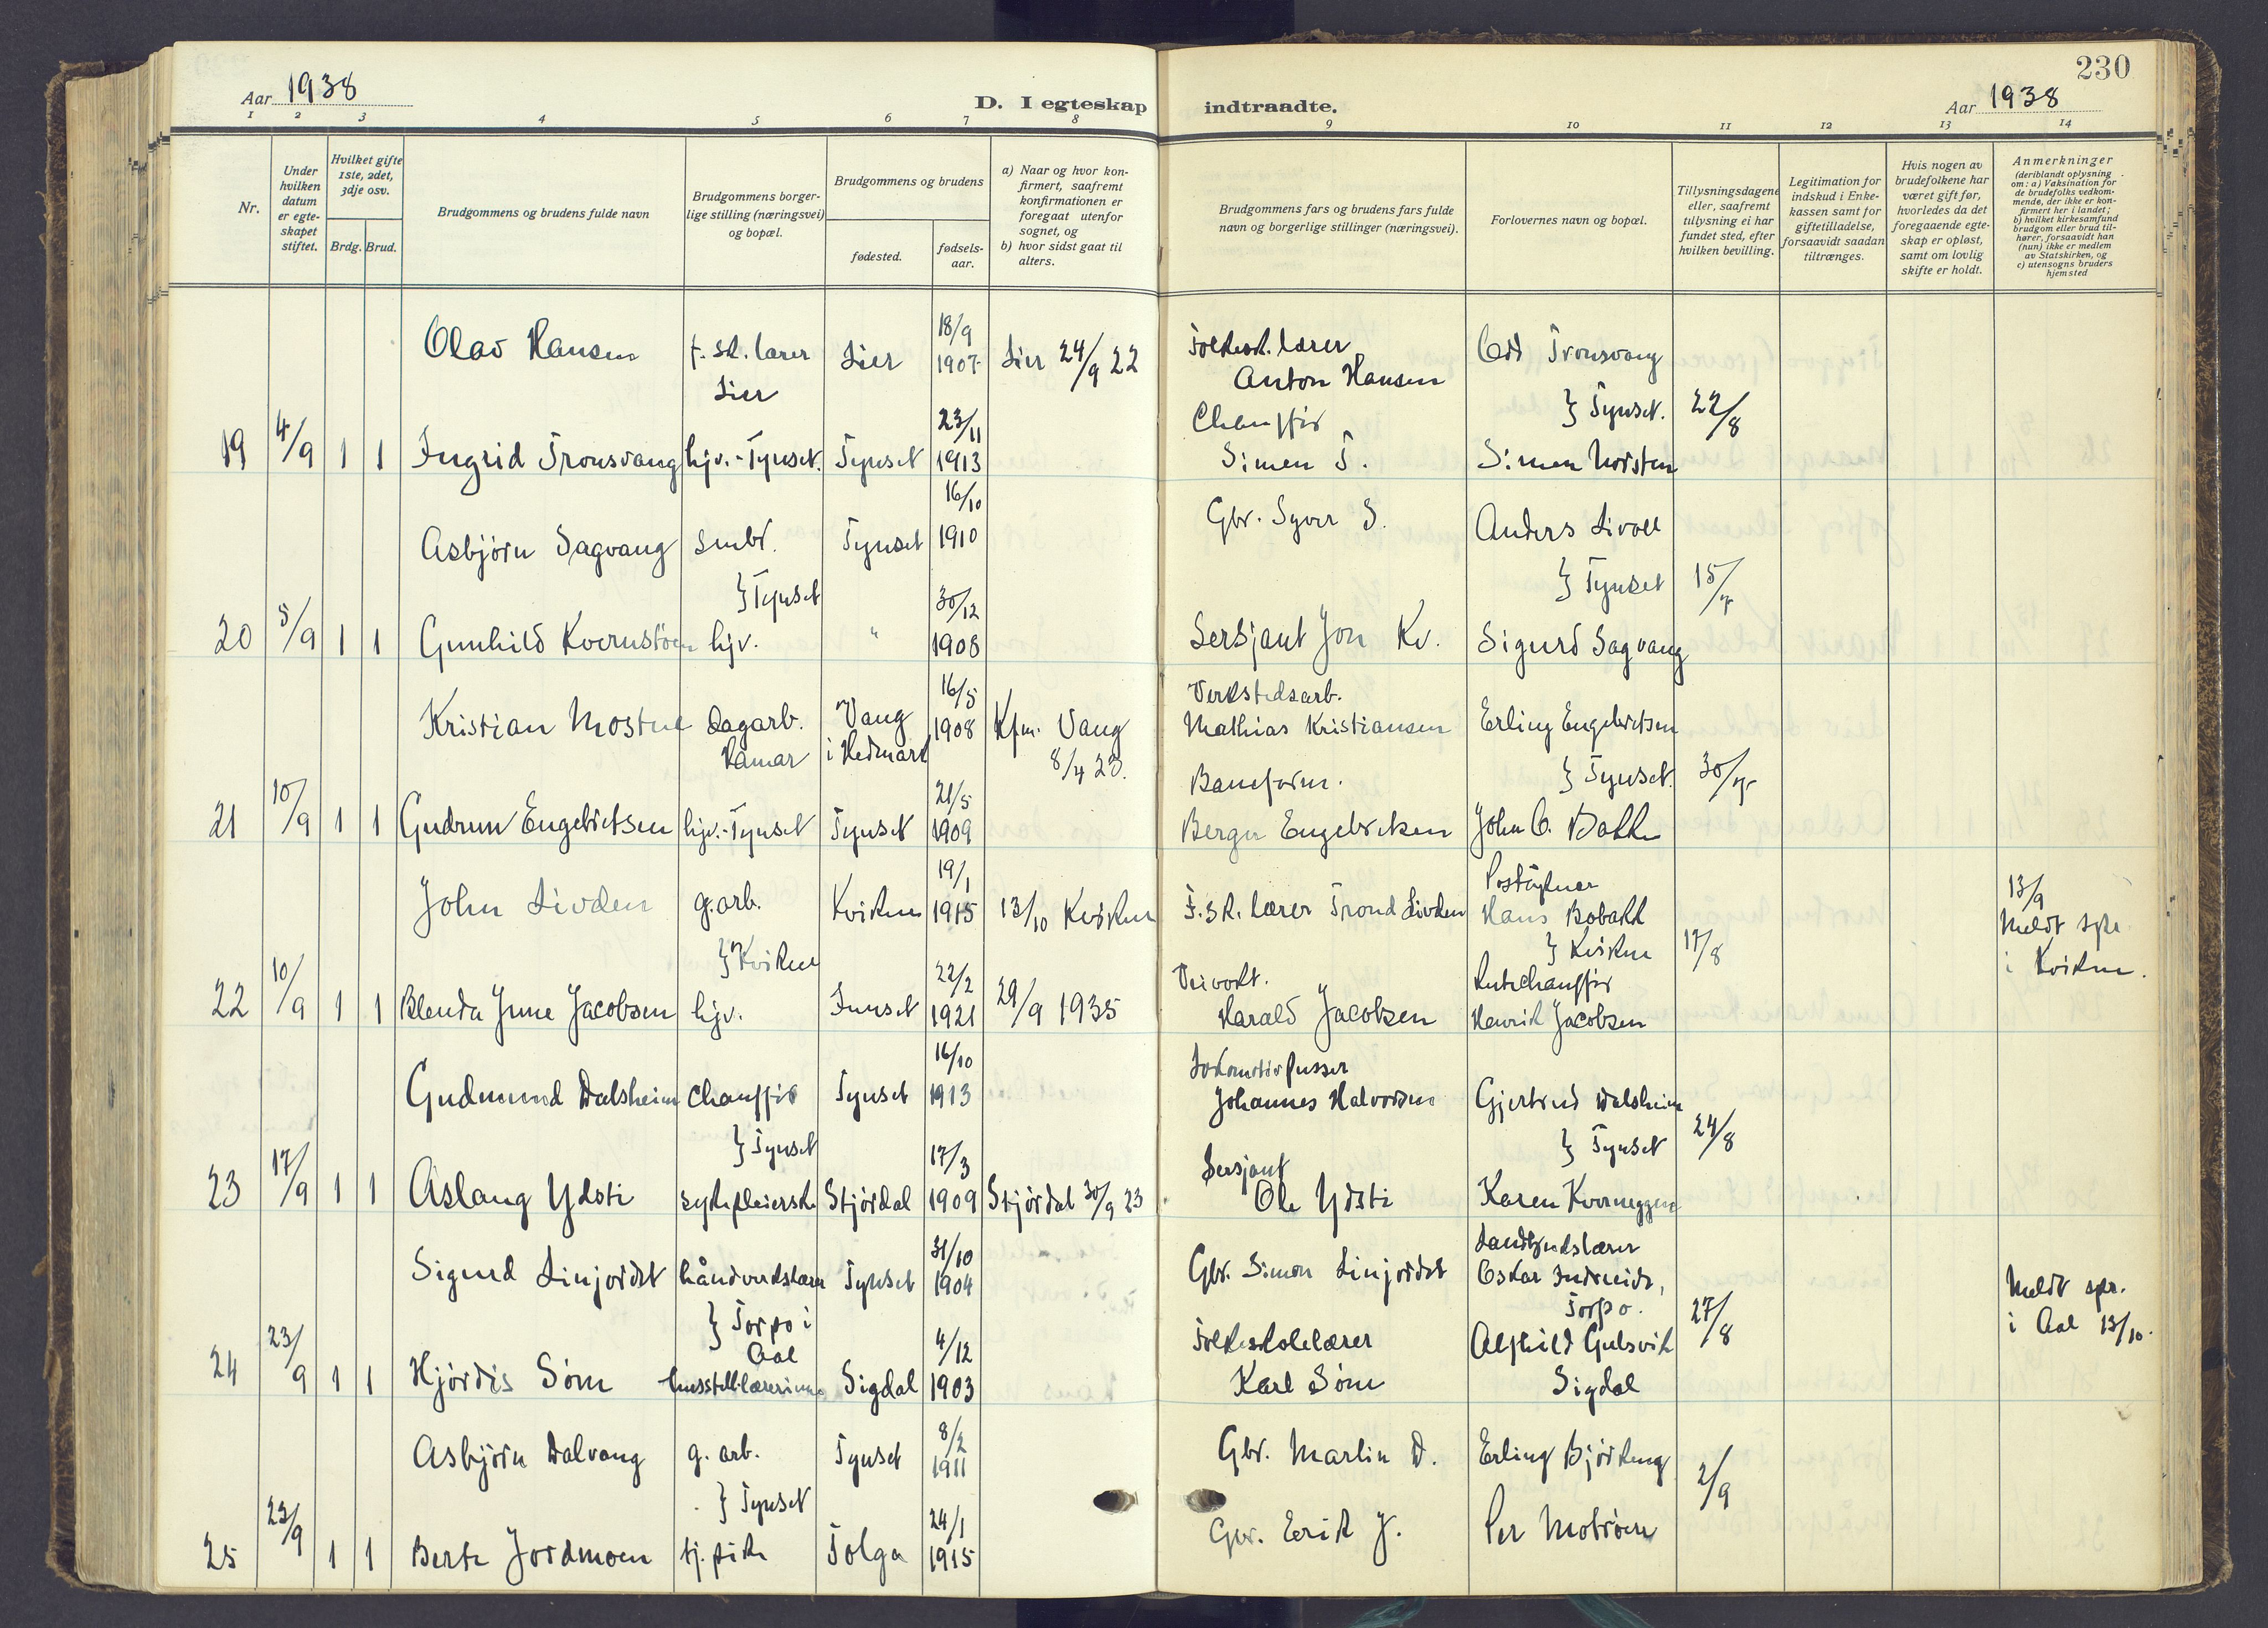 230
Aar 1938
D. I egteskap indtraadte.
Aar 1938
1 2 3 4 5 6 7 8 9 10 11 12 13 14
Nr.
Under
hvilken
datum
er egte-
skapet
stiftet.
Hvilket gifte
1ste, 2det,
3dje osv.
Brdg. Brud.
Brudgommens og brudens fulde navn
Brudgommens borger-
lige stilling (næringsvei)
og bopæl.
Brudgommens og brudens
fødested.
fødsels-
aar.
a) Naar og hvor kon-
firmert, saafremt
konfirmationen er
foregaat utenfor
sognet, og
b) hvor sidst gaat til
alters.
Brudgommens fars og brudens fars fulde
navn og borgerlige stillinger (næringsvei).
Forlovernes navn og bopæl.
Tillysningsdagene
eller, saafremt
tillysning ei har
fundet sted, efter
hvilken bevilling.
Legitimation for
indskud i Enke-
kassen samt for
giftetilladelse,
forsaavidt saadan
tiltrænges.
Hvis nogen av
brudefolkene har
været gift før,
hvorledes da det
foregaaende egte-
skap er opløst,
samt om lovlig
skifte er holdt.
Anmerkninger
(deriblandt oplysning
om: a) Vaksination for
de brudefolks vedkom-
mende, der ikke er kon-
firmert her i landet;
b) hvilket kirkesamfund
brudgom eller brud til-
hører, forsaavidt han
(hun) ikke er medlem
av Statskirken, og
c) utensogns bruders
hjemsted
Olav Hansen f. sk. lærer Lier Lier 18/9 1907 Lier 24/9 22 Folkesk. lærer Anton Hansen Odd Tronsvang
} Tynset. 22/8
19 4/9 1 1 Ingrid Tronsvang hjv. - Tynset. Tynset 23/11 1913 Chauffør Simen T. Simen Norsten
Asbjørn Sagvang smbr. Tynset 16/10 1910 Gbr. Syver S. Anders Livoll
} Tynset } Tynset 15/7
20 5/9 1 1 Gunhild Kvernstøen hjv. " 30/12 1908 Sersjant Jon Kv. Sigurd Sagvang
Kristian Mostue dagarb. Hamar Vang i Hedmark 16/5 1908 Kfm. Vang 8/4 23. Verkstedsarb. Mathias Kristiansen Erling Engebretsen
} Tynset. 30/7
21 10/9 1 1 Gudrun Engebretsen hjv. - Tynset Tynset 21/5 1909 Baneform. Berger Engebretsen John O. Bakke
John Livden g. arb. Kvikne 19/1 1915 13/10 Kvikne F. sk. lærer Trond Livden Poståpner Hans Bobakk 13/9 Meldt spr. i Kvikne.
} Kvikne } Kvikne 17/8
22 10/9 1 1 Blenda June Jacobsen hjv. Innset 22/2 1921 29/9 1935 Veivokt. Harald Jacobsen Rutechauffør Henrik Jacobsen
Gudmund Dalsheim chauffør Tynset 16/10 1913 Lokomotivpusser Johannes Halvorsen Gjertrud Dalsheim
} Tynset } Tynset 24/8
23 17/9 1 1 Aslaug Ydsti sykepleierske Stjørdal 17/3 1909 Stjørdal 30/9 23 Sersjant Ole Ydsti Karen Kverneggen
Sigurd Linjordet håndverkslærer Tynset 31/10 1904 Gbr. Simon Linjordet Landbrukslærer Oskar Indreeide, Torpo. Meldt spr. i Aal 13/10.
} Torpo i Aal 27/8
24 23/9 1 1 Hjørdis Søm husstell.lærerinne Sigdal 4/12 1903 Folkeskolelærer Karl Søm Alfhild Gulsvik Sigdal
Asbjørn Dalvang g. arb. Tynset 8/2 1911 Gbr. Martin D. Erling Bjørkeng
} Tynset 2/9
25 23/9 1 1 Berte Jordmoen tj. pike Tolga 24/1 1915 Gbr. Erik J. Per Motrøen